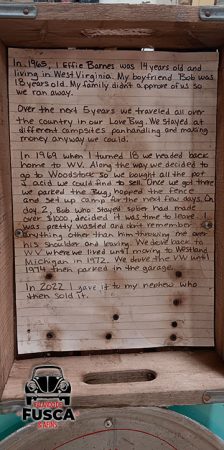 In 1965, I Effie Barnes was 14 years old and
living in West Virginia. My boyfriend Bob was
18 years old. My family didn't approve of us so
we ran away.
Over the next 5 years we traveled all over
the country in our Love Bug. We stayed at
different campsites panhandling and making
money anyway we could.
In 1969 when I turned 18 we headed back
home to WV. Along the way we decided to
go to Woodstock so we bought all the pot
& acid we could find to sell. Once we got there
we parked the Bug, hopped the fence
and set up camp for the next few days. On
day 2, Bob who stayed sober had made
over $1000, decided it was time to leave. I
was pretty wasted and don't remember
anything other than him throwing me over
his shoulder and leaving. We drove back to
WV where we lived until moving to Westland
Michigan in 1972. We drove the VW until
1974 then parked in the garage.
In 2022 I gave it to my nephew who
then sold it.
FUSCA